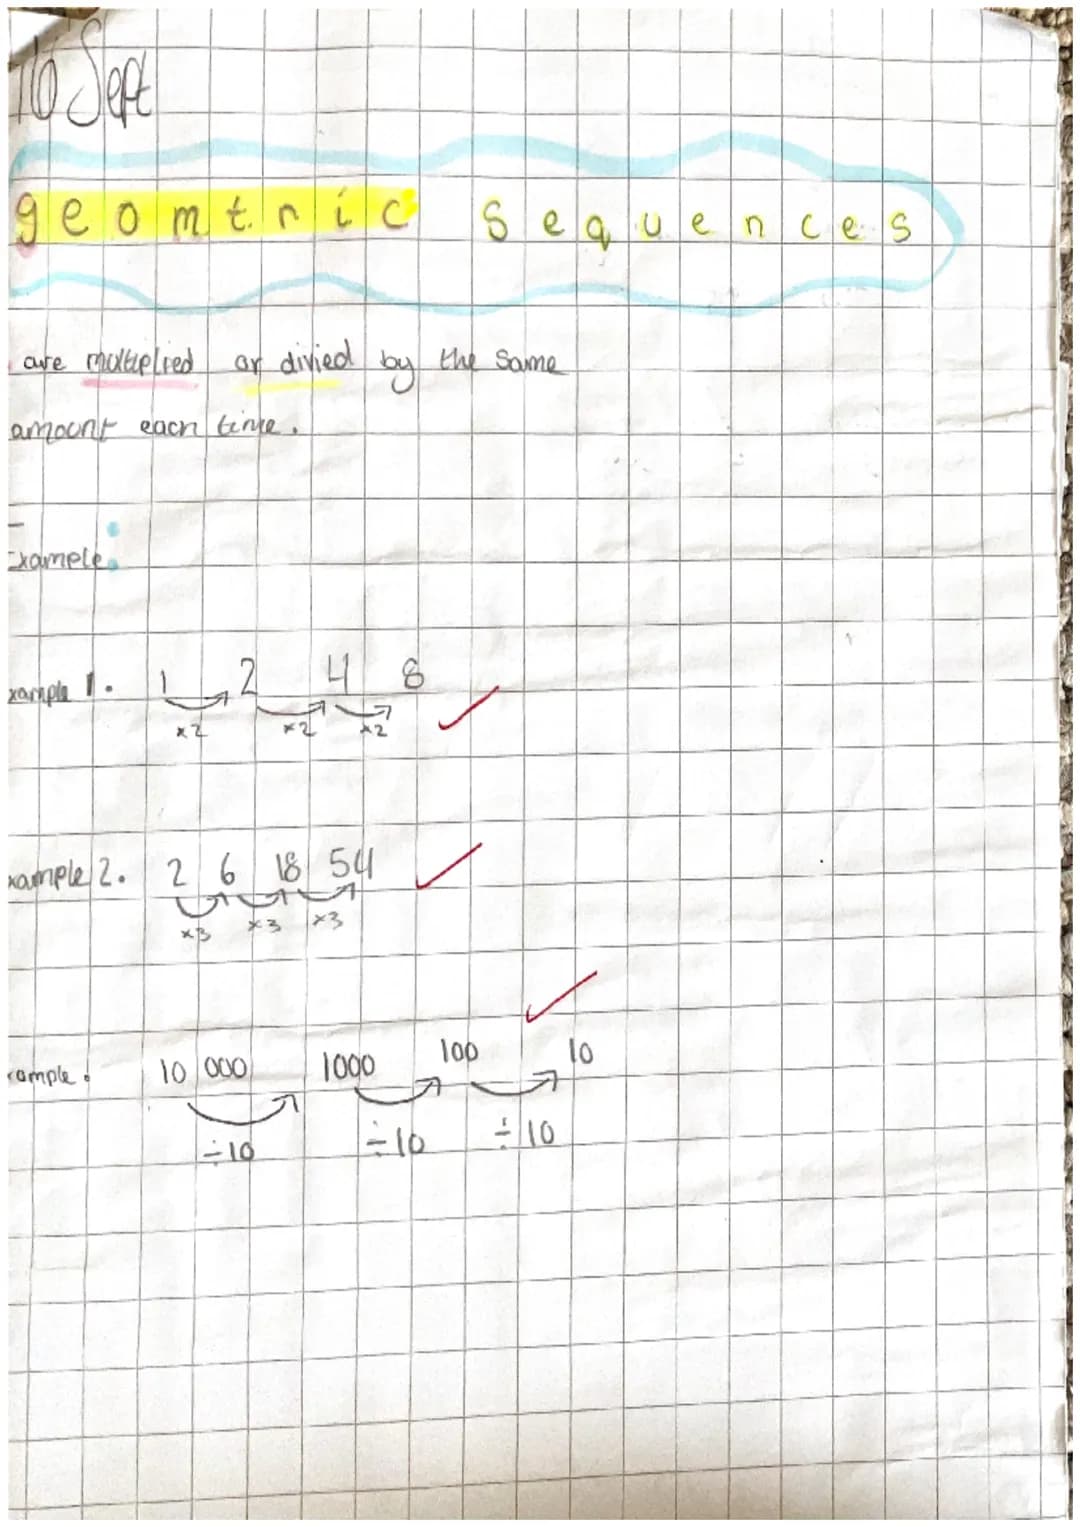 16 Sept
geomtric sequences
are multiplied or divied by the same
amount each time.
Example:
xample 1. 1 2 4 8
×2 ×2 ×2
xample 2. 2 6 18 54
×3 ×3 ×3
xample. 10 000 1000 100 10
÷10 ÷10 ÷10